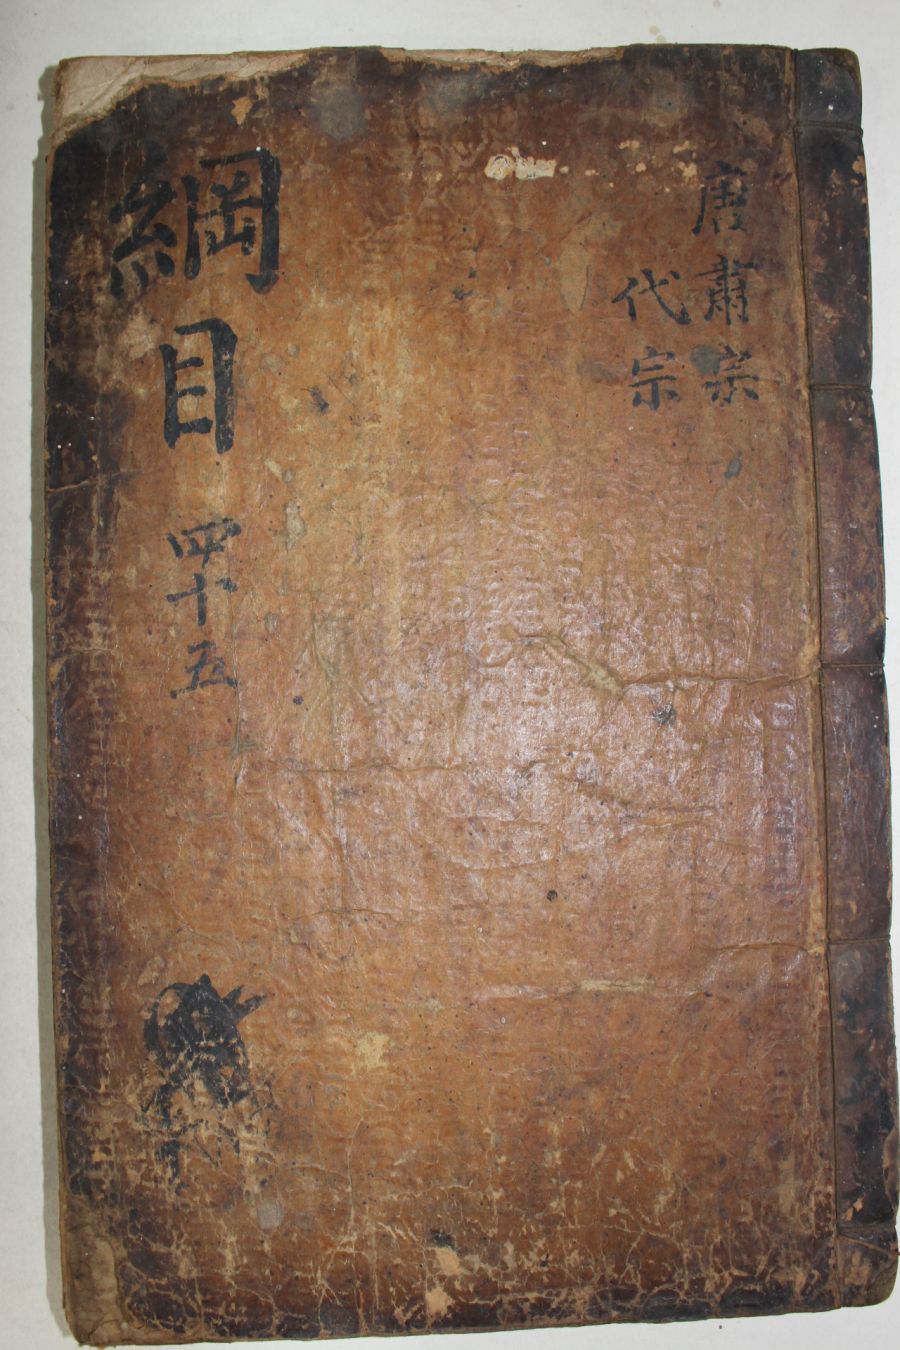 唐肅宗
代宗
綱目 四十五